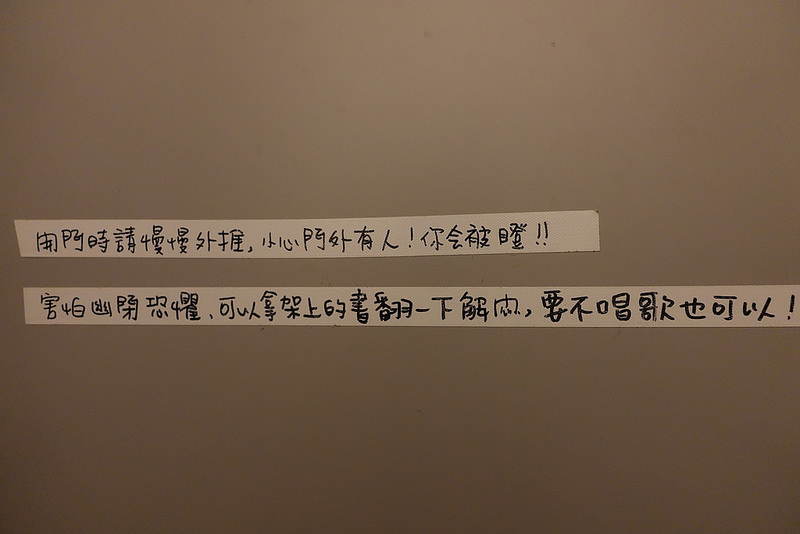 開門時請慢慢外推,小心門外有人!你会被瞪!!
害怕幽閉恐懼、可以拿架上的書翻一下解悶,要不唱歌也可以!